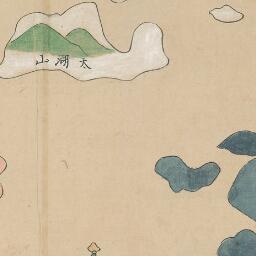 太湖山